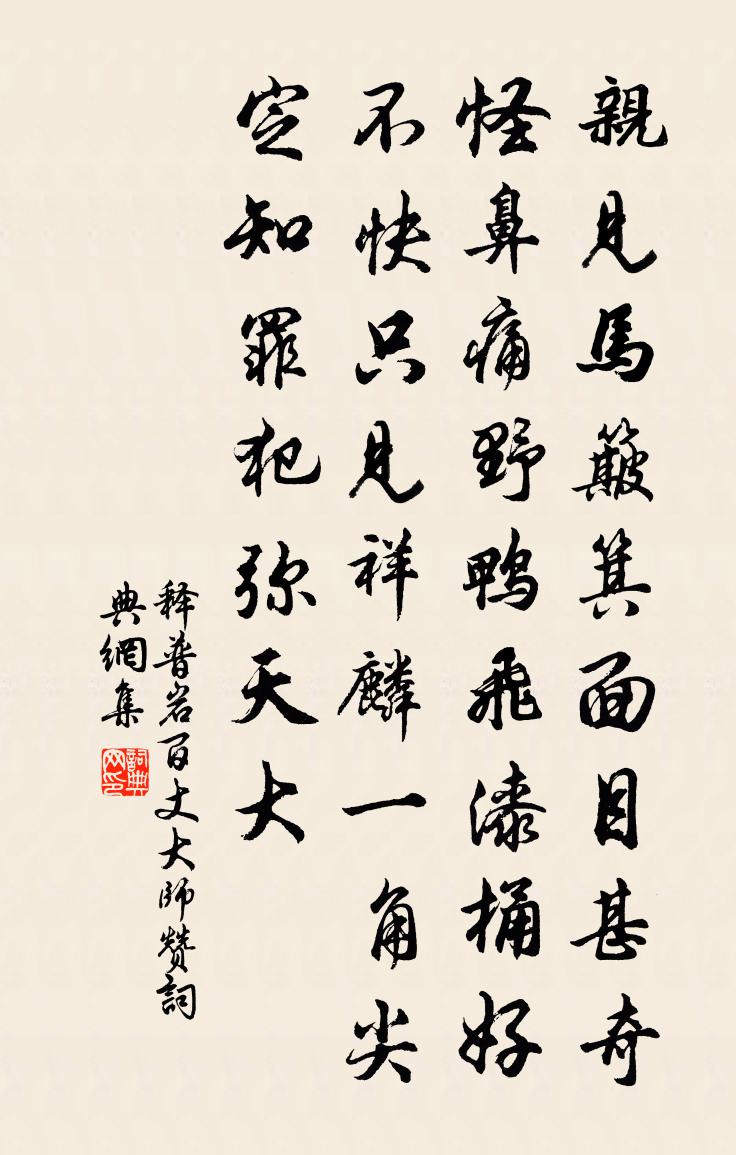 親見馬簸箕面目甚奇
怪鼻痛野鴨飛漆桶好
不快只見祥麟一角尖
定知罪犯弥天大
释普岩百丈大师赞詞
典網集
詞典网印